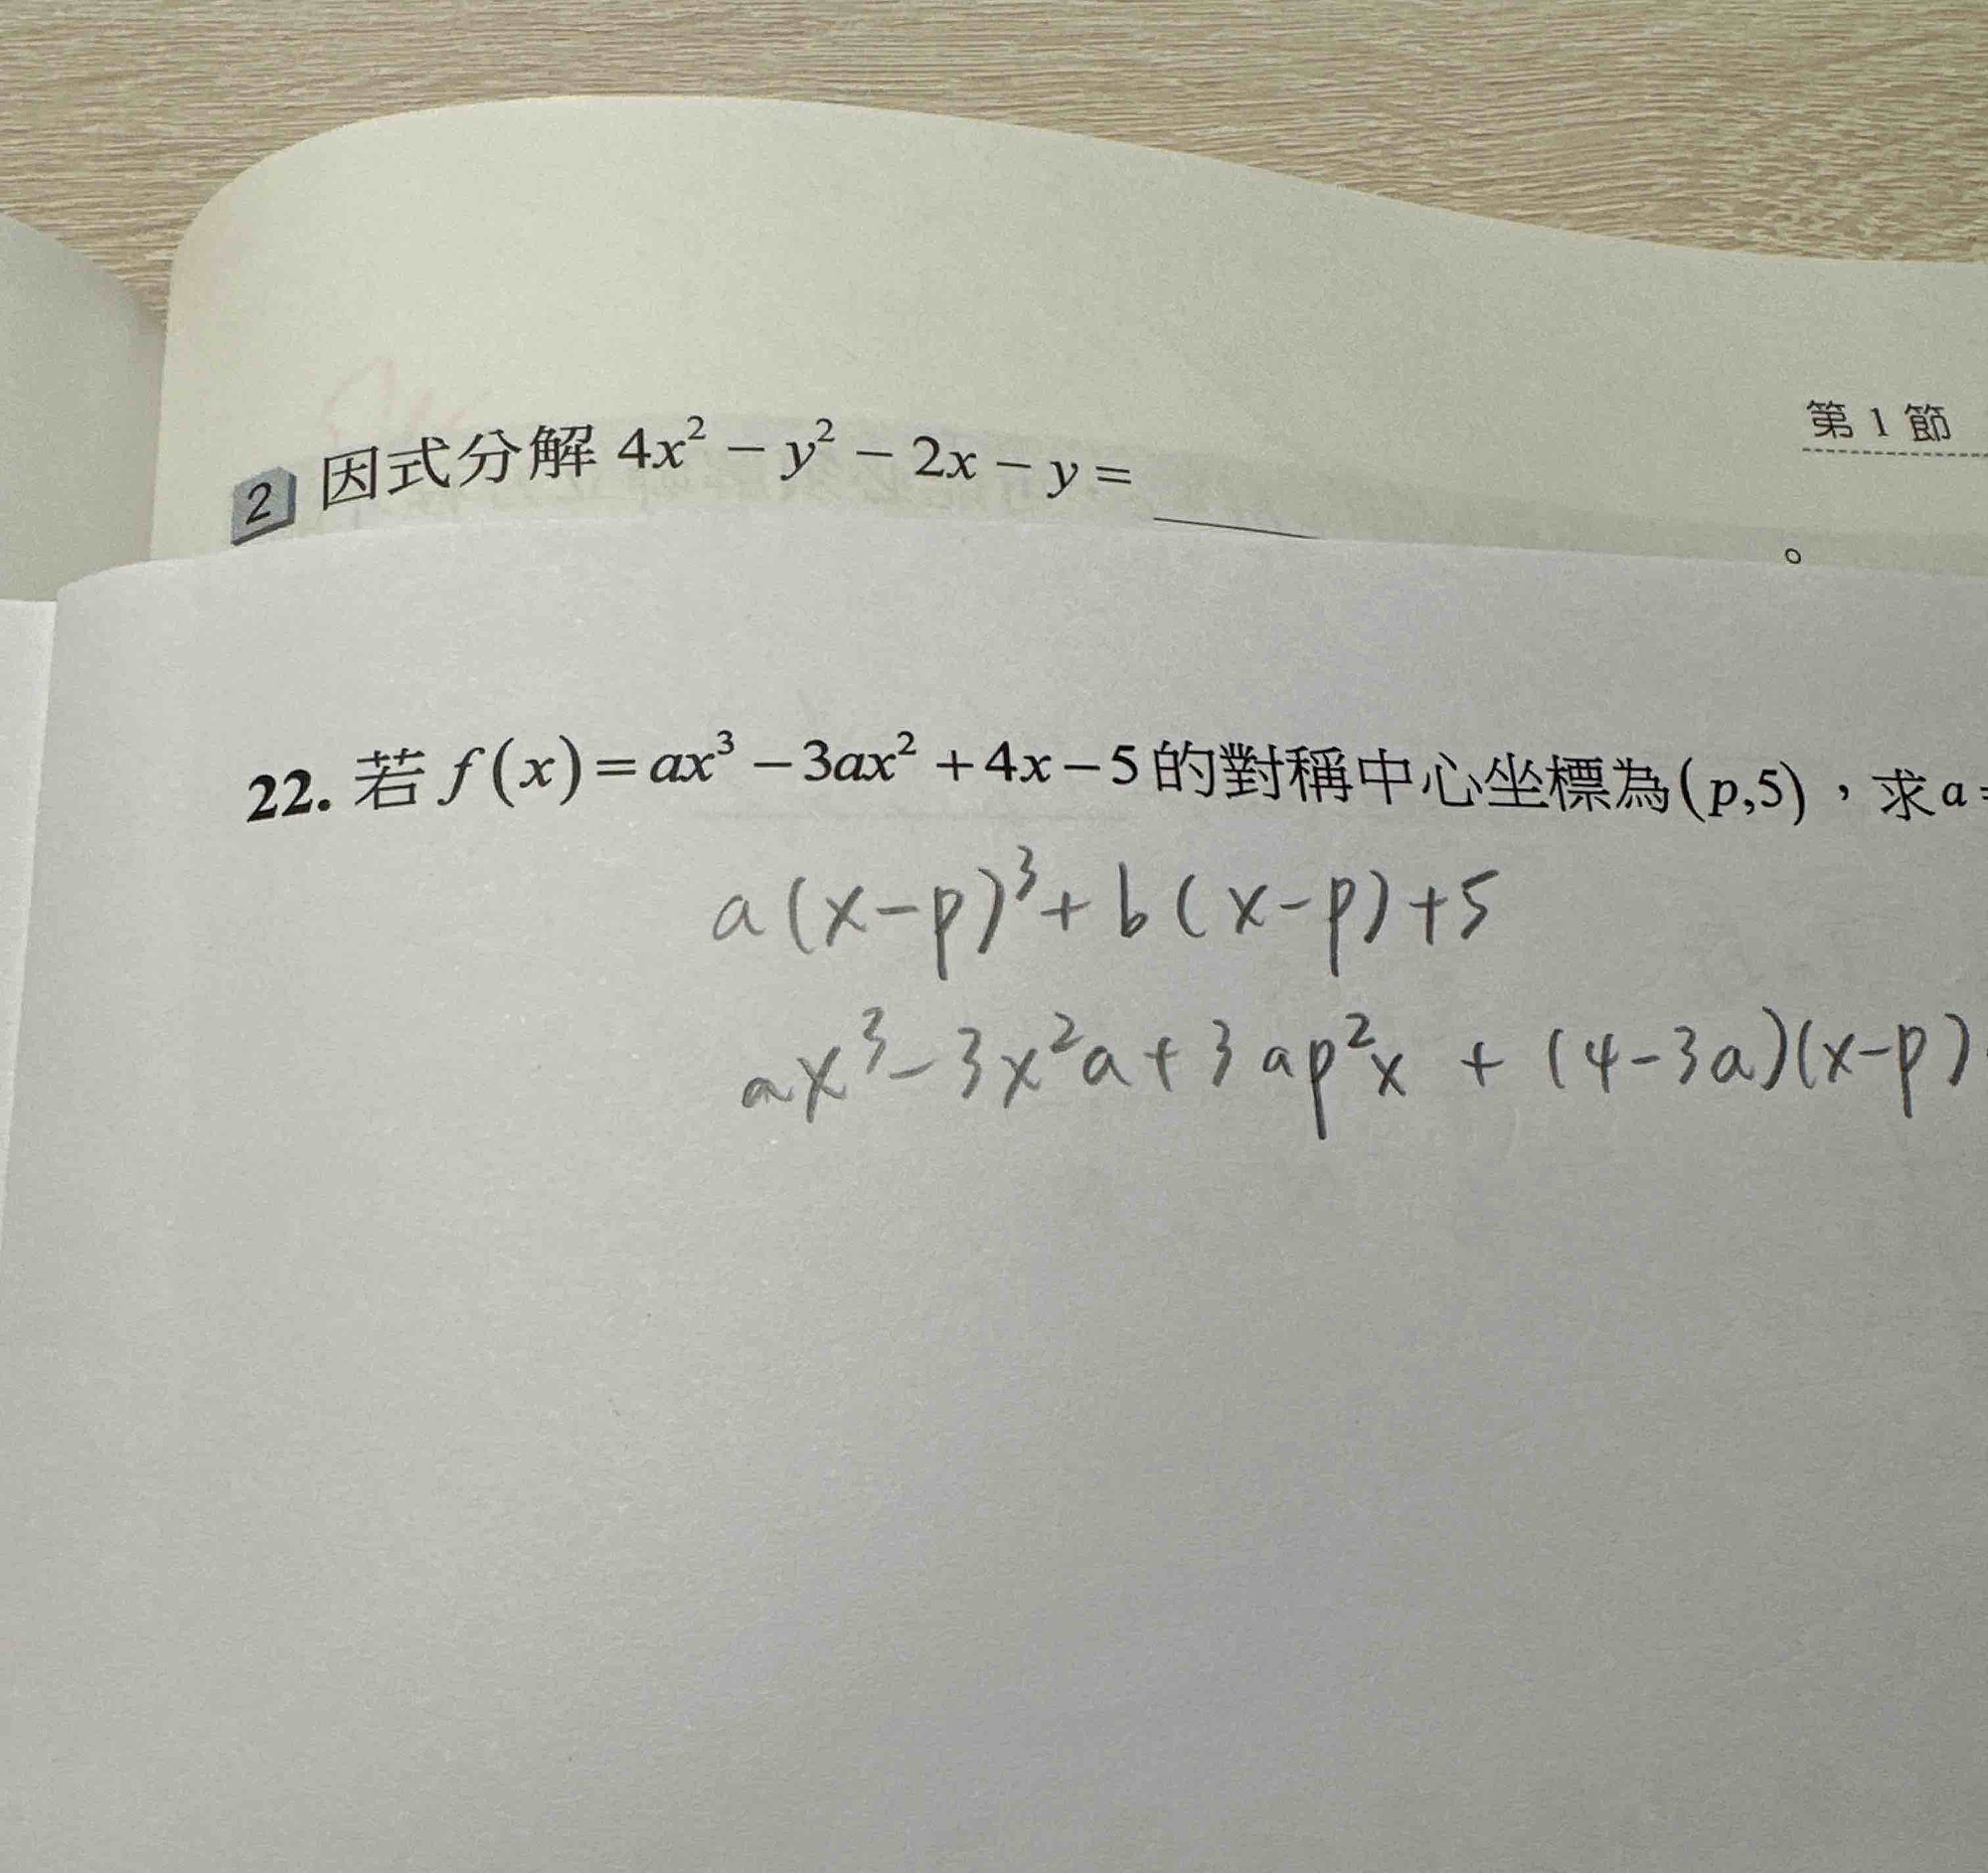 第1節
2 因式分解 4x² − y² − 2x − y = ______。
22. 若 f(x) = ax³ − 3ax² + 4x − 5 的對稱中心坐標為 (p,5)，求 a =
a(x−p)³ + b(x−p) + 5
ax³ − 3x²a + 3ap²x + (4−3a)(x−p)